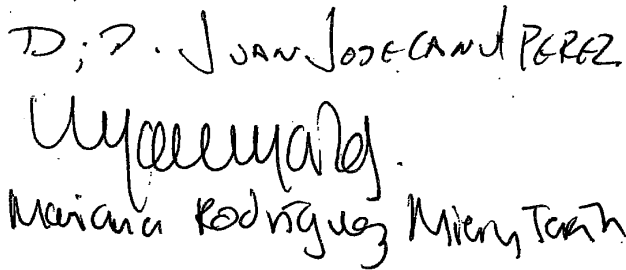 D;P. JUAN JOSE CANUL PEREZ
Mariana Rodríguez Mier y Terán